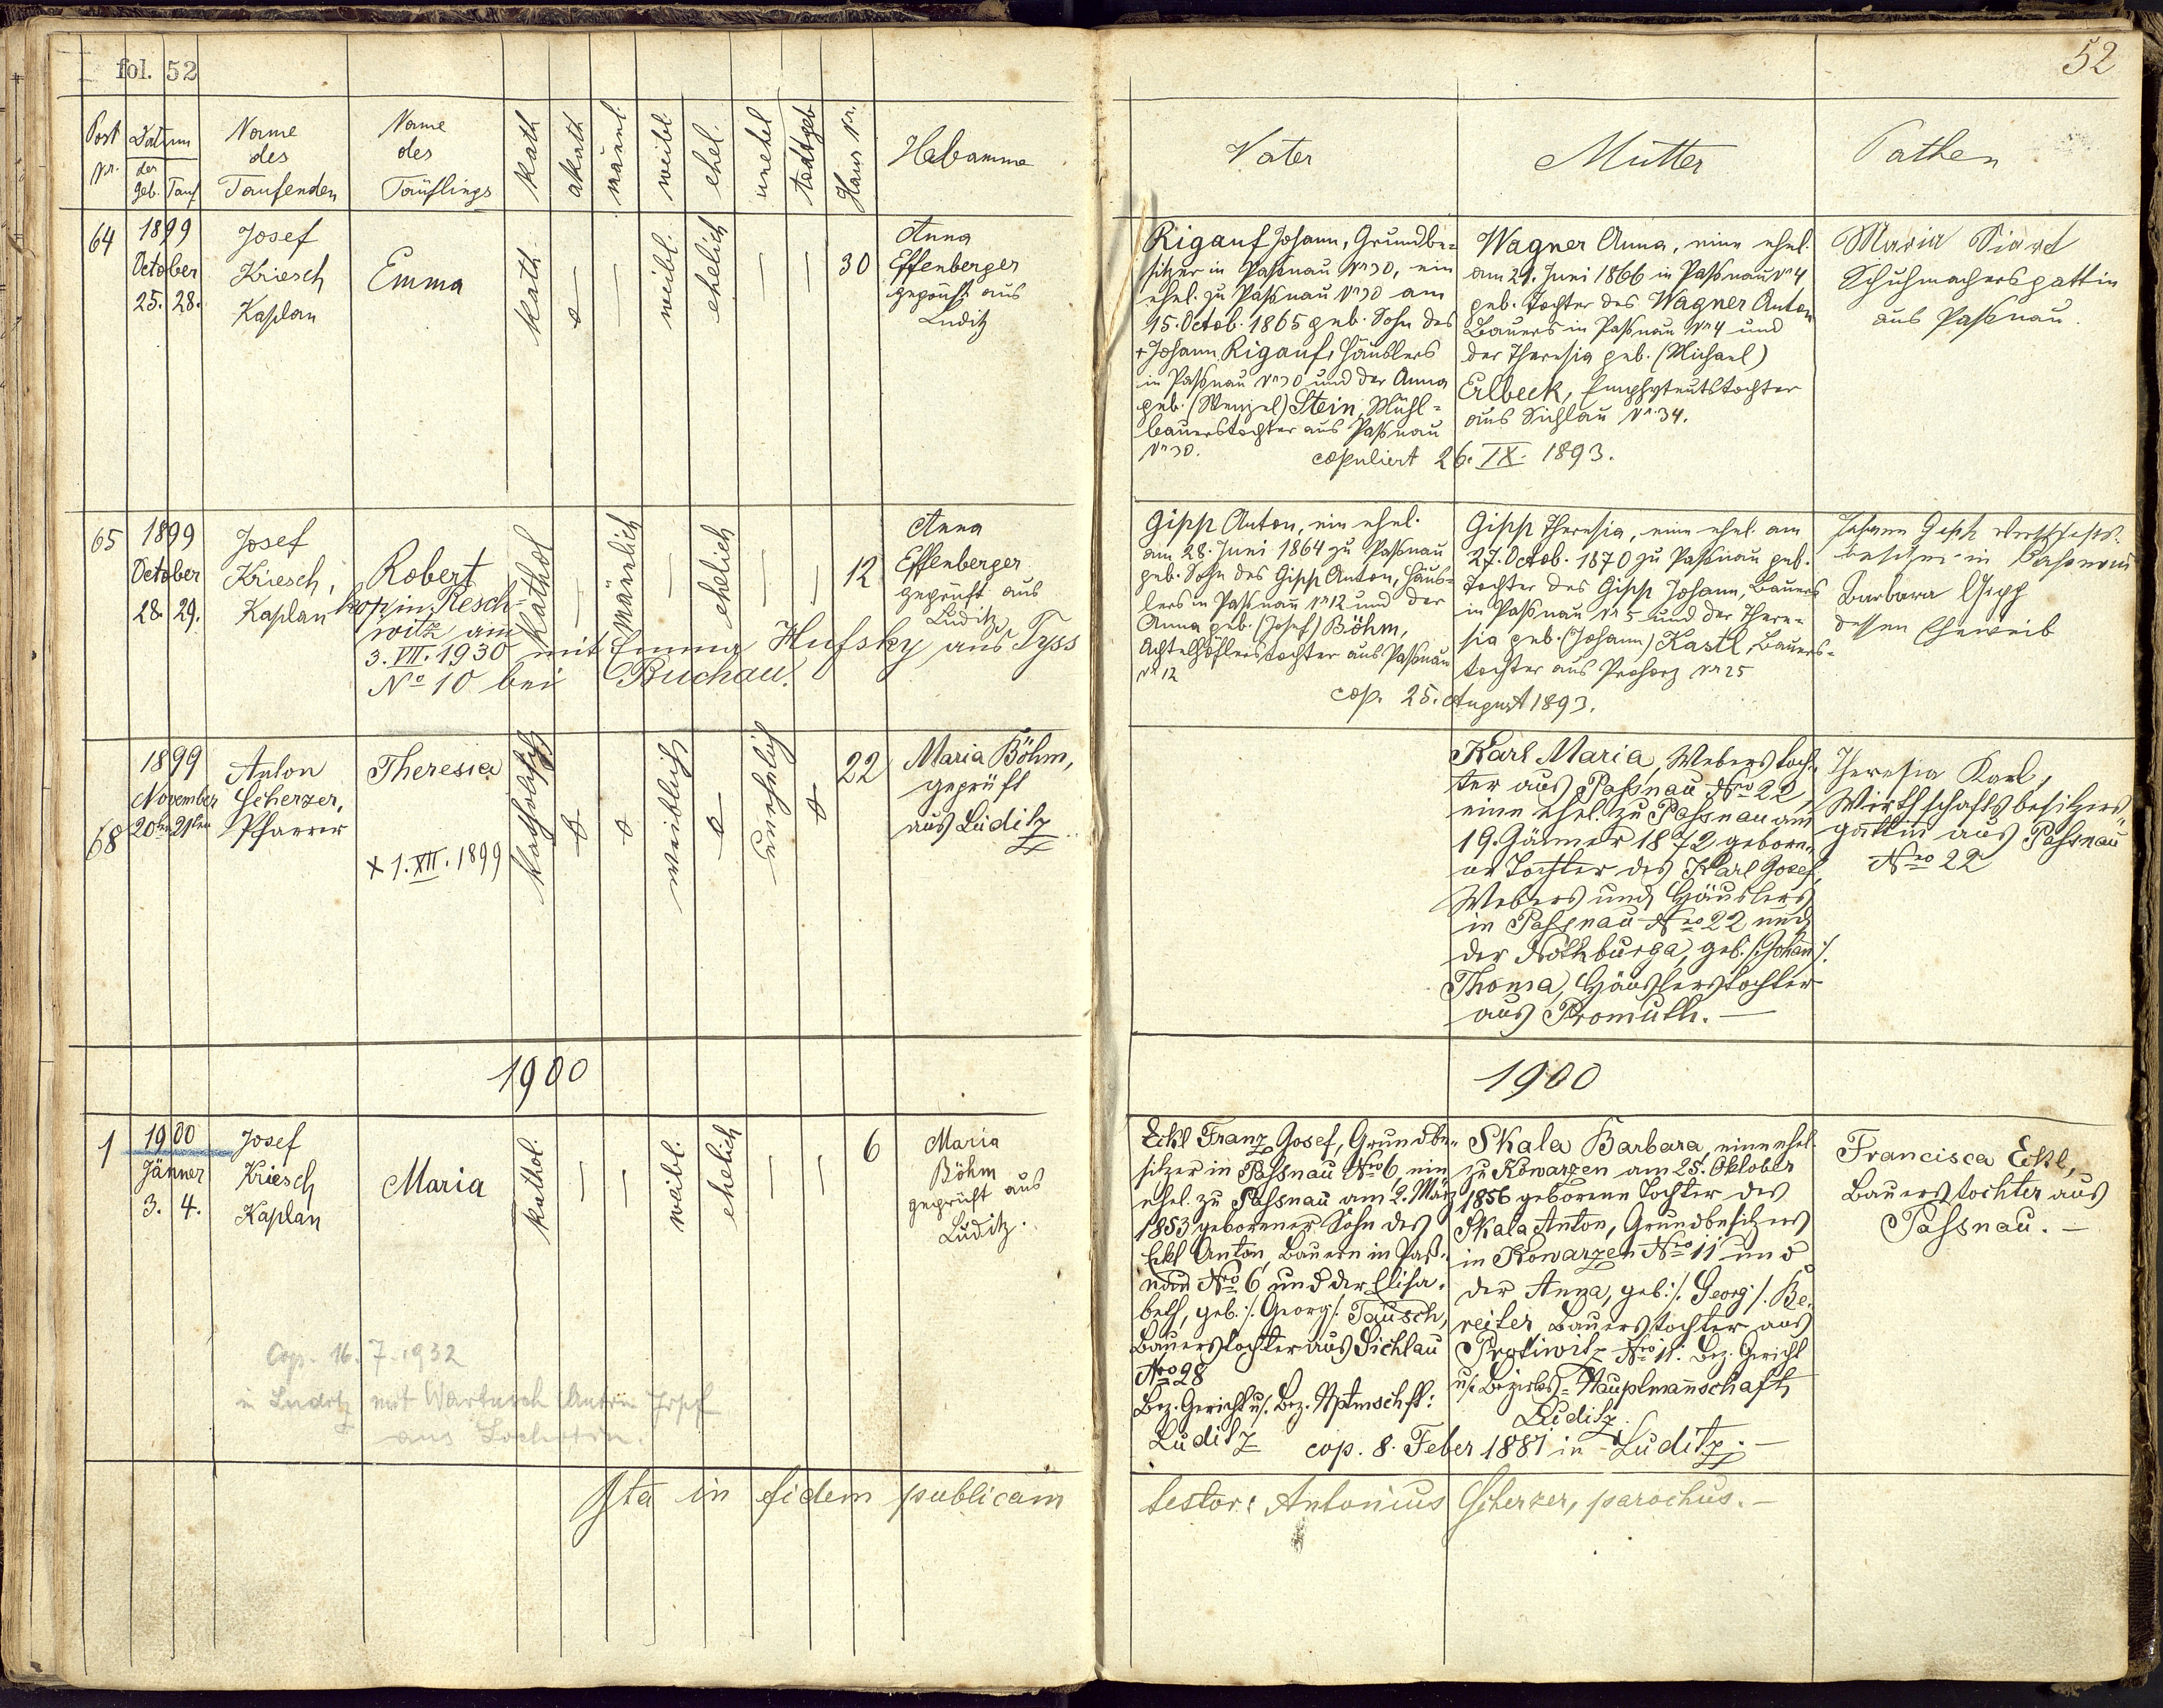 fol. 52
Post Nr.
Datum
der
Geb. Tauf
Name
des
Taufenden
Name
des
Täuflings
kath
akath
männl.
weibl.
ehel.
unehel
todtgeb
Haus Nr.
Hebamme
64
1899
October
25. 28.
Josef
Kriesch
Kaplan
Emma
kath.
weibl.
ehelich
30
Anna
Effenberger
geprüft aus
Luditz
65
1899
October
28. 29.
Josef
Kriesch,
Kaplan
Robert
kop. in Resch-
witz am
3. VII. 1930 mit Emma Hufsky aus Tyss
No 10 bei Buchau.
kathol
männlich
ehelich
12
Anna
Effenberger
geprüft aus
Luditz
68
1899
November
20ten 21ten
Anton
Scherzer,
Pfarrer
Theresia
+ 1. XII. 1899
katholisch
weiblich
unehelich
22
Maria Böhm,
geprüft
aus Luditz
1900
1
1900
Jänner
3. 4.
Josef
Kriesch
Kaplan
Maria
kathol.
weibl.
ehelich
6
Maria
Böhm
geprüft aus
Luditz.
Cop. 16. 7. 1932
in Luditz mit Wartusch Anton Josef
aus
Ita in fidem publicam
52
Vater
Mutter
Pathen
Rigauf Johann, Grundbe=
sitzer in Paßnau Nr 30, ein
ehel. zu Paßnau Nr 30 am
15. Octob. 1865 geb. Sohn des
+ Johann Rigauf, Häuslers
in Paßnau Nr 30 und der Anna
geb. (Wenzel) Stein, Mühl=
bauerstochter aus Paßnau
Nr 30.
Wagner Anna, eine ehel.
am 21. Juni 1866 in Paßnau Nr 4
geb. Tochter des Wagner Anton
Bauers in Paßnau Nr 4 und
der Theresia geb. (Michael)
Erlbeck, Emphyteutstochter
aus Sichlau Nr 34.
copuliert 26. IX. 1893.
Maria Siard
Schuhmachersgattin
aus Paßnau.
Gipp Anton, ein ehel.
am 28. Juni 1864 zu Paßnau
geb. Sohn des Gipp Anton, Häus=
lers in Paßnau Nr 12 und der
Anna geb. (Josef) Böhm,
Achtelhöflerstochter aus Paßnau
Nr 12
Gipp Theresia, eine ehel. am
27. Octob. 1870 zu Paßnau geb.
Tochter des Gipp Johann, Bauers
in Paßnau Nr 5 und der There=
sia geb. (Johann) Kastl, Bauers=
tochter aus Prohorz Nr 25
cop. 25. August 1893.
Johann Gipp Wirthschafts-
besitzer in Passnau
Barbara Gipp
dessen Eheweib
Karl Maria, Weberstoch-
ter aus Paßnau Nro 22,
eine ehel. zu Paßnau am
19. Jänner 1872 gebore-
ne Tochter des Karl Josef,
Webers und Häuslers
in Paßnau Nro 22 und
der Nothburga, geb. /: Johann :/
Thoma, Häuslerstochter
aus Promuth. —
Theresia Karl,
Wirthschaftsbesitzers-
gattin aus Paßnau
Nro 22
1900
Eckl Franz Josef, Grundbe-
sitzer in Paßnau Nro 6, ein
ehel. zu Paßnau am 2. März
1853 geborener Sohn des
Eckl Anton, Bauern in Paß-
nau Nro 6 und der Elisa-
beth, geb. /: Georg :/ Tausch,
Bauerstochter aus Sichlau
Nro 28
Bez. Gericht u. Bez. Hptmschft:
Luditz
Skala Barbara, eine ehel.
zu Kowarzen am 25. Oktober
1856 geborene Tochter des
Skala Anton, Grundbesitzers
in Kowarzen Nro 11 und
der Anna, geb. /: Georg :/ Be-
reiter, Bauerstochter aus
Protiwitz Nro 11. Bez. Gericht
u. Bezirks-Hauptmannschaft
Luditz.
cop. 8. Feber 1881 in Luditz. —
Francisca Eckl,
Bauerstochter aus
Paßnau. —
testor: Antonius Scherzer, parochus. —